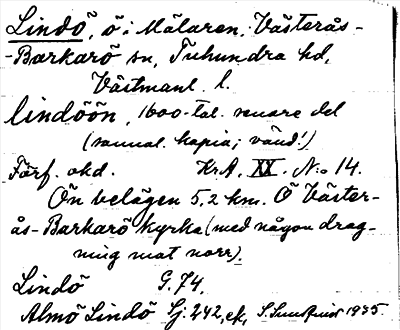 Lindö, ö i Mälaren, Västerås-
-Barkarö sn, Tuhundra hd,
Västmanl. l.
lindöön, 1600-tal. senare del
(samt. kopia; vänd!)
Förf. okd. Kr.A. XX. N:o 14.
Ön belägen 5,2 km. Ö Väster-
ås-Barkarö kyrka (med någon drag-
ning mot norr).
Lindö G. 74.
Almö Lindö Lj. 242, ek, S. Sundqvist 1935.